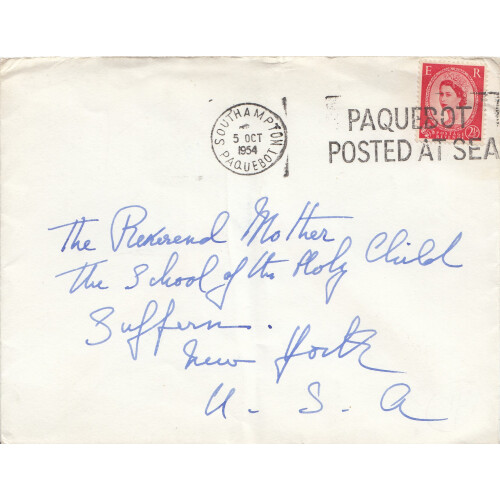 E R
SOUTHAMPTON
5 OCT
1954
PAQUEBOT
PAQUEBOT
POSTED AT SEA
2½ 2½
The Reverend Mother
The School of the Holy Child
Suffern.
New York
U. S. A